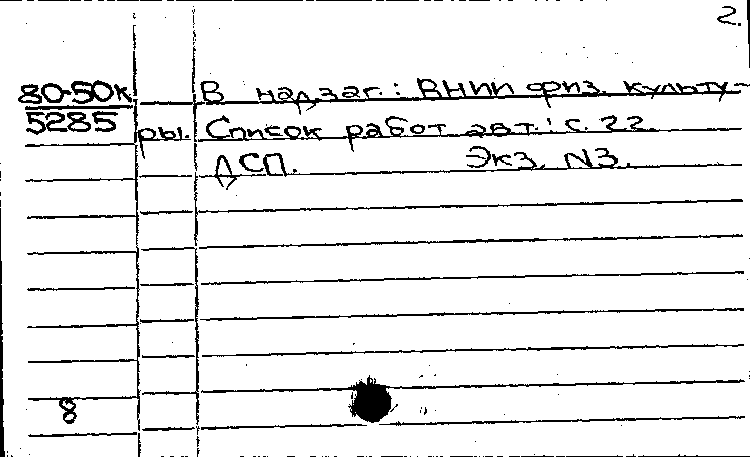 2.
80-50к В надзаг.: ВНИИ физ. культу-
5285 ры. Список работ авт.: с. 22.
ДСП. Экз. N3.
8